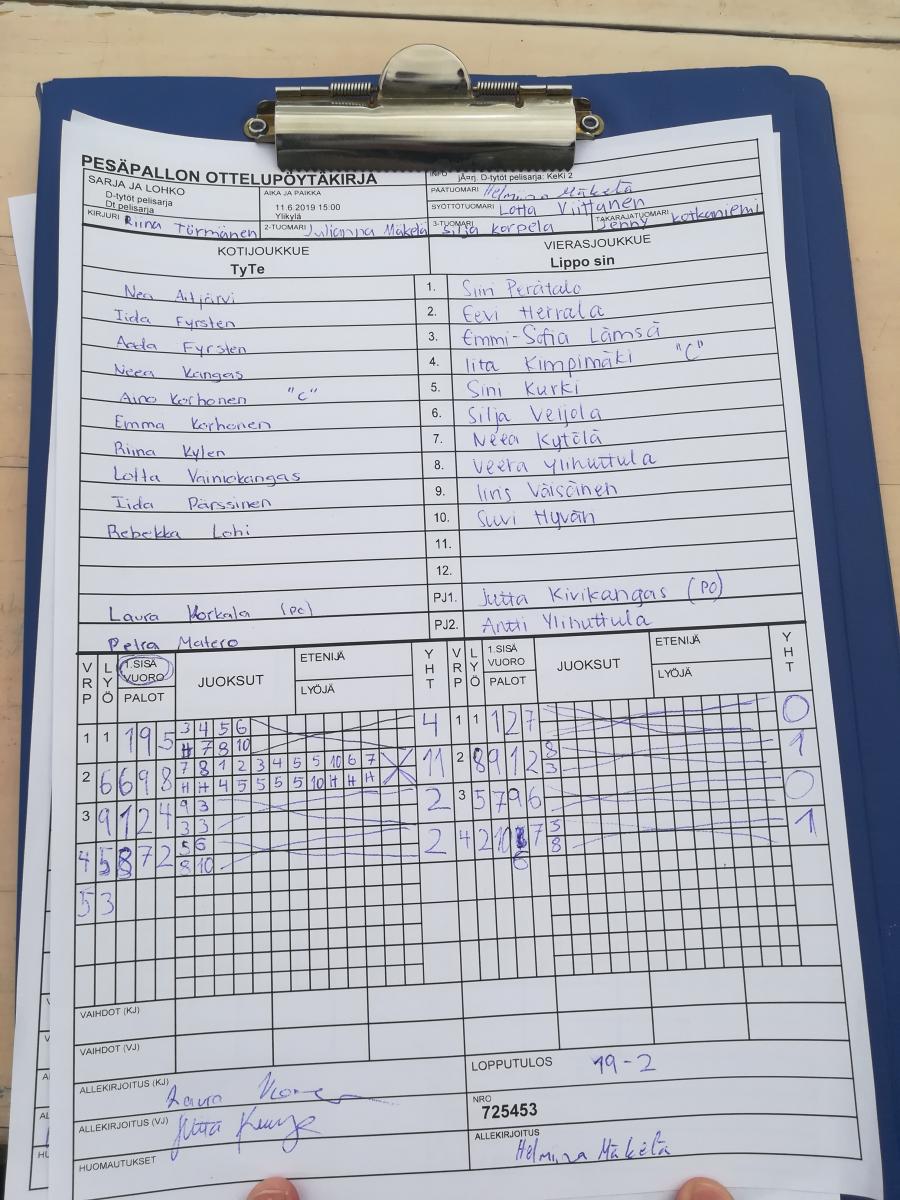 PESÄPALLON OTTELUPÖYTÄKIRJA
INFO
jÄrj. D-tytöt pelisarja: KeKi 2
SARJA JA LOHKO
D-tytöt pelisarja
Dt pelisarja
AIKA JA PAIKKA
11.6.2019 15:00
Ylikylä
PÄÄTUOMARI Helmina Mäkelä
SYÖTTÖTUOMARI Lotta Viittanen
KIRJURI Riina Törmänen 2-TUOMARI Julianna Mäkelä 3-TUOMARI Silja Korpela TAKARAJATUOMARI Jenny Kotkaniemi
KOTIJOUKKUE VIERASJOUKKUE
TyTe Lippo sin
Nea Aitjärvi 1. Siiri Perätalo
Iida Fyrsten 2. Eevi Herrala
Aada Fyrsten 3. Emmi-Sofia Lämsä
Neea Kangas 4. Iita Kimpimäki "C"
Aino Korhonen "C" 5. Sini Kurki
Emma Korhonen 6. Silja Veijola
Riina Kylen 7. Neea Kytölä
Lotta Vainiokangas 8. Veera Ylihuttula
Iida Pärssinen 9. Iiris Väisänen
Rebekka Lohi 10. Suvi Hyvän
11.
12.
Laura Korkala (PO) PJ1. Jutta Kivikangas (PO)
Petra Matero PJ2. Antti Ylihuttula
VRP LYÖ 1.SISÄ VUORO PALOT JUOKSUT ETENIJÄ LYÖJÄ YHT VRP LYÖ 1.SISÄ VUORO PALOT JUOKSUT ETENIJÄ LYÖJÄ YHT
1 1 1 9 5 3 4 5 6 4 1 1 1 2 7 0
H 7 8 10
2 6 6 9 8 7 8 1 2 3 4 5 5 10 6 7 11 2 8 9 1 2 8 1
H H 4 5 5 5 5 10 H H H 3
3 9 1 2 4 9 3 2 3 5 7 9 6 0
3 3
4 5 8 7 2 5 6 2 4 2 10 7 5 1
8 10 6 8
5 3
VAIHDOT (KJ)
VAIHDOT (VJ)
ALLEKIRJOITUS (KJ) Laura
LOPPUTULOS 19-2
ALLEKIRJOITUS (VJ) Jutta
NRO
725453
HUOMAUTUKSET
ALLEKIRJOITUS
Helmina Mäkelä